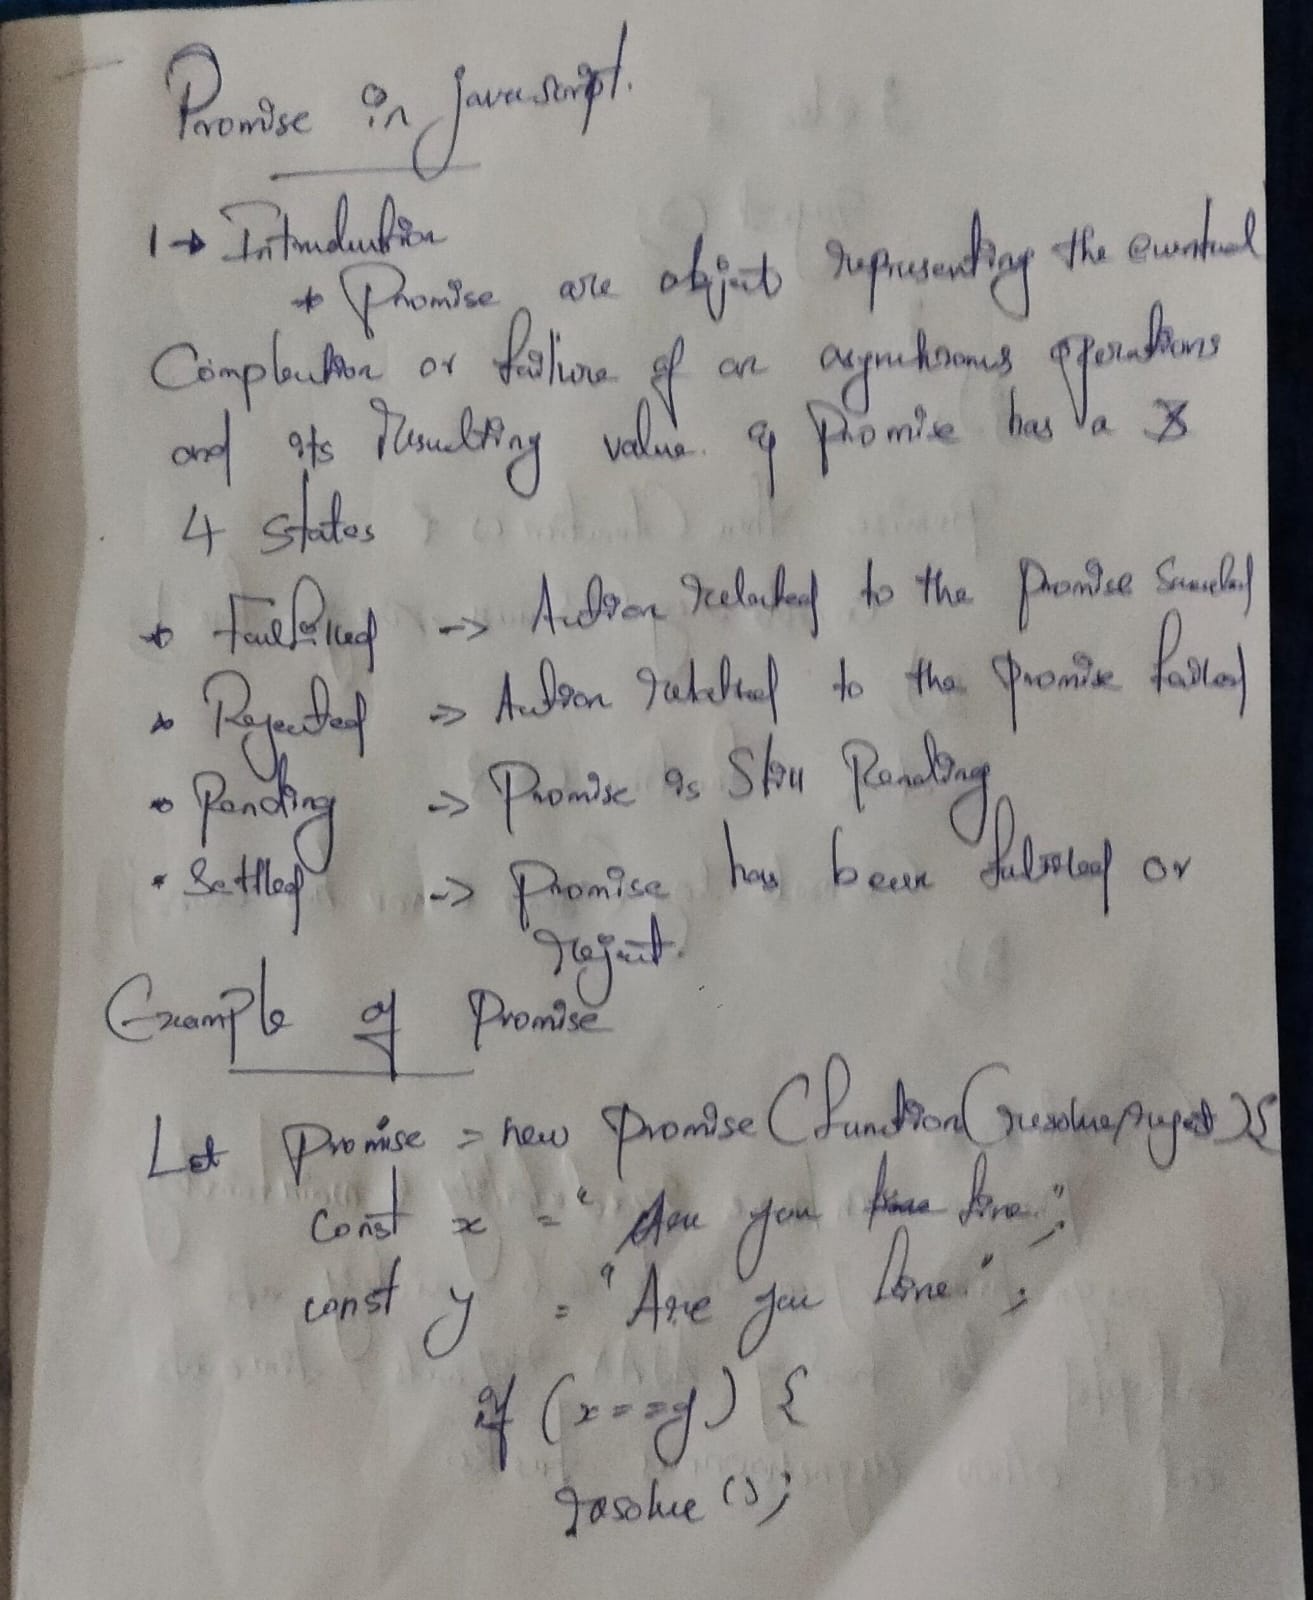 Promise in javascript.
1 → Introduction
* Promise are object representing the eventual
Completion or failure of an asynchronous operations
and its resulting value. of Promise has a
4 states
* Faulfilled -> Action related to the promise
* Rejected => Action related to the promise failed
* Pending -> Promise is Still Pending
* Settled -> Promise has been fulfilled or
reject.
Example of Promise
Let Promise = new Promise (function(resolve, reject){
const x = "Are you fine";
const y = "Are you fine";
if (x===y) {
resolve ();